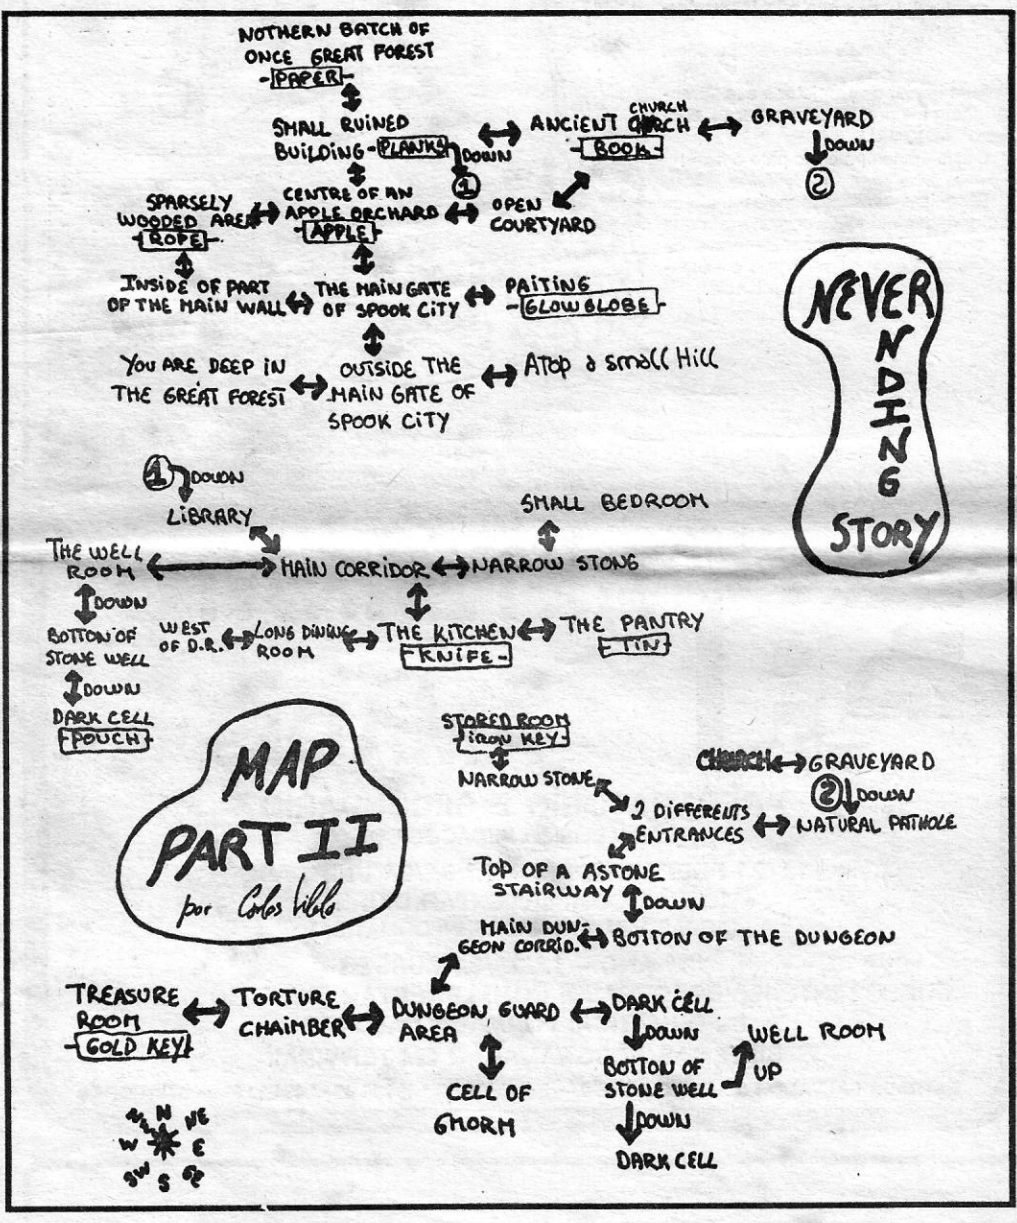 NOTHERN BATCH OF
ONCE GREAT FOREST
-PAPER-
SMALL RUINED
BUILDING -PLANKS-
DOWN
1
CHURCH
ANCIENT CHURCH
-BOOK-
GRAVEYARD
DOWN
2
SPARSELY
WOODED AREA
-ROPE-
CENTRE OF AN
APPLE ORCHARD
-APPLE-
OPEN
COURTYARD
INSIDE OF PART
OF THE MAIN WALL
THE MAIN GATE
OF SPOOK CITY
PAITING
-GLOWGLOBE-
YOU ARE DEEP IN
THE GREAT FOREST
OUTSIDE THE
MAIN GATE OF
SPOOK CITY
ATop a small Hill
NEVER
NDING
STORY
1 DOWN
LIBRARY
SMALL BEDROOM
THE WELL
ROOM
MAIN CORRIDOR
NARROW STONE
DOWN
BOTTON OF
STONE WELL
WEST
OF D.R.
LONG DINING
ROOM
THE KITCHEN
-KNIFE-
THE PANTRY
-TIN-
DOWN
DARK CELL
-POUCH-
MAP
PART II
por Carlos Vilela
STORED ROOM
-IRON KEY-
NARROW STONE
CHURCH
GRAVEYARD
2 DOWN
2 DIFFERENTS
ENTRANCES
NATURAL PATHOLE
TOP OF A ASTONE
STAIRWAY
DOWN
MAIN DUN-
GEON CORRID.
BOTTON OF THE DUNGEON
TREASURE
ROOM
-GOLD KEY-
TORTURE
CHAIMBER
DUNGEON GUARD
AREA
DARK CELL
DOWN
WELL ROOM
UP
BOTTON OF
STONE WELL
CELL OF
GMORM
DOWN
DARK CELL
NW N NE
W E
SW S SE